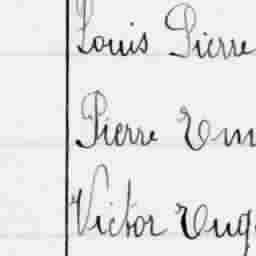 Louis Pierre
Pierre Em
Victor Eug